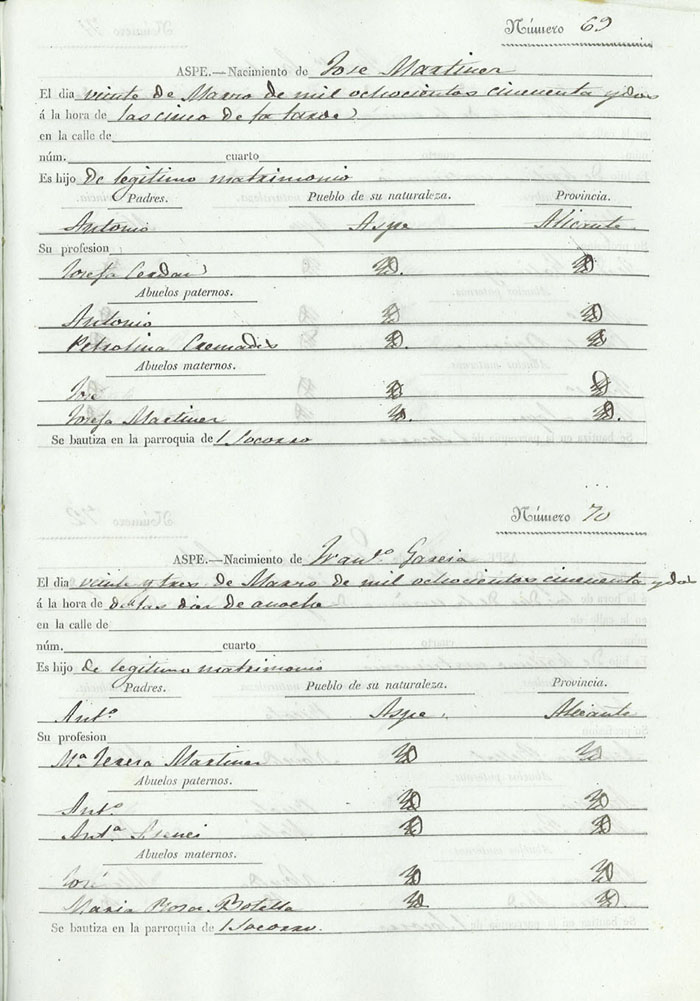 Número 69
ASPE.—Nacimiento de Jose Martinez
El dia veinte de Marzo de mil ochocientos cincuenta y dos
á la hora de las cinco de la tarde
en la calle de
núm. cuarto
Es hijo de legitimo matrimonio
Padres. Pueblo de su naturaleza. Provincia.
Antonio Aspe Alicante
Su profesion
Josefa Cerdan
Abuelos paternos.
Antonio
Petrolina Cremades
Abuelos maternos.
José
Josefa Martinez
Se bautiza en la parroquia de Socorro
Número 70
ASPE.—Nacimiento de Garcia
El dia veinte y tres de Marzo de mil ochocientos cincuenta y dos
á la hora de las de anoche
en la calle de
núm. cuarto
Es hijo de legitimo matrimonio
Padres. Pueblo de su naturaleza. Provincia.
Antº Aspe Alicante
Su profesion
Mª Teresa Martinez
Abuelos paternos.
Antº
Antª
Abuelos maternos.
José
Maria Rosa Botella
Se bautiza en la parroquia de Socorro.